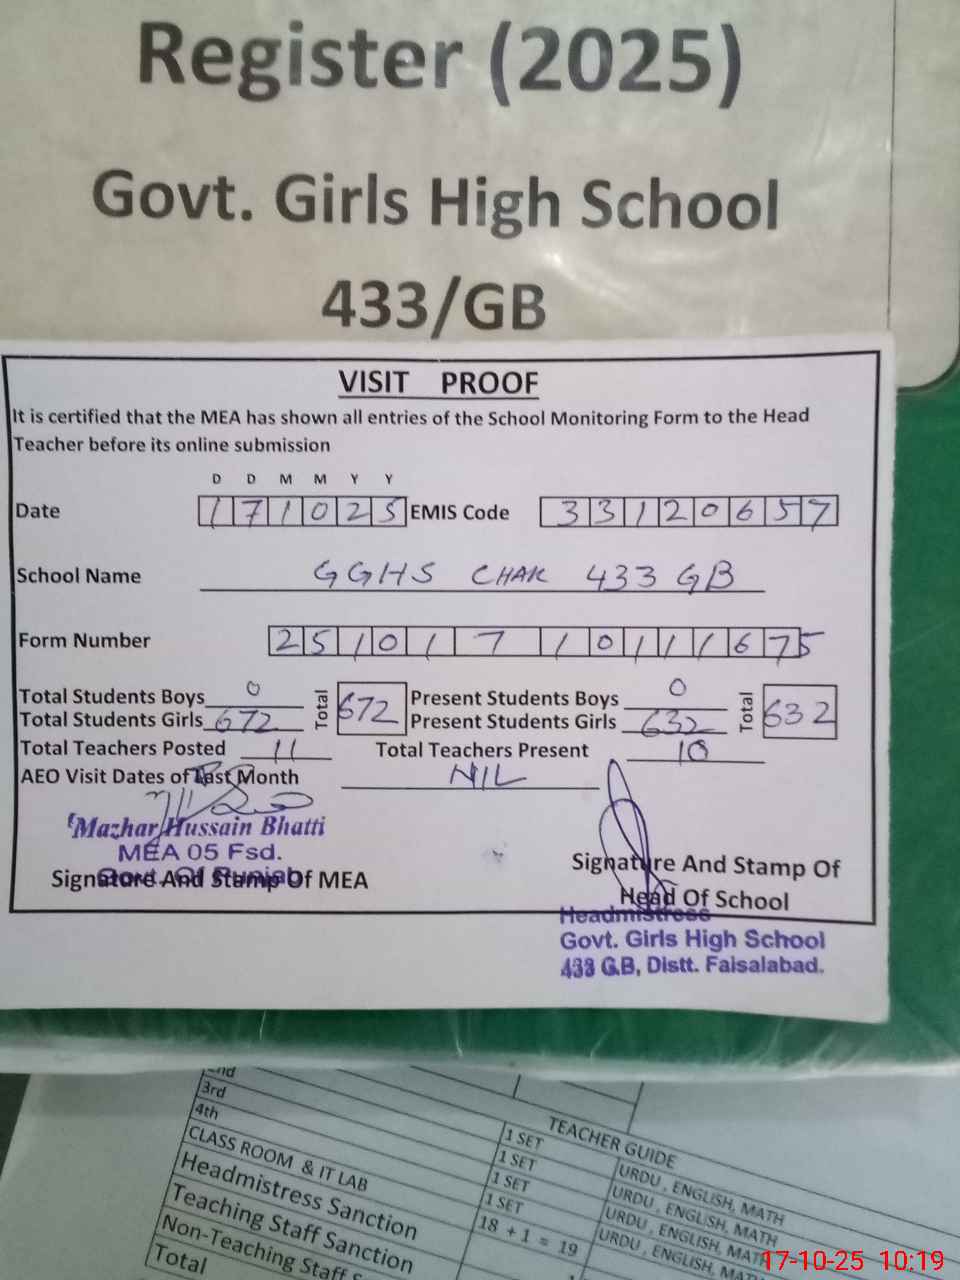 Register (2025)
Govt. Girls High School
433/GB
VISIT PROOF
It is certified that the MEA has shown all entries of the School Monitoring Form to the Head
Teacher before its online submission
D D M M Y Y
Date 171025 EMIS Code 33120657
School Name GGHS CHAK 433 GB
Form Number 25101710111675
Total Students Boys 0 Total 672 Present Students Boys 0 Total 632
Total Students Girls 672 Present Students Girls 632
Total Teachers Posted 11 Total Teachers Present 10
AEO Visit Dates of Last Month NIL
Mazhar Hussain Bhatti
MEA 05 Fsd.
Govt. Of Punjab
Signature And Stamp Of MEA
Signature And Stamp Of
Head Of School
Headmistress
Govt. Girls High School
433 G.B, Distt. Faisalabad.
2nd
3rd
4th
TEACHER GUIDE
1 SET URDU , ENGLISH, MATH
1 SET URDU , ENGLISH, MATH
1 SET URDU , ENGLISH, MATH
1 SET URDU , ENGLISH, MATH
CLASS ROOM & IT LAB 18 + 1 = 19
Headmistress Sanction
Teaching Staff Sanction
Non-Teaching Staff
Total
17-10-25 10:19